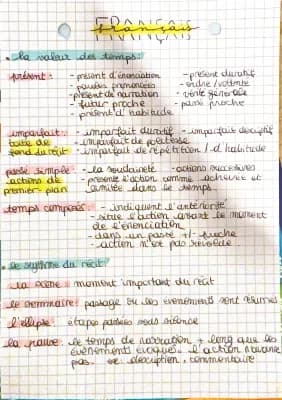 FRANÇAIS
français
• la valeur des temps:
présent: - présent d'énonciation - présent duratif
- paroles prononcées - ordre / volonté
- présent de narration - vérité générale
- futur proche - passé proche
- présent d'habitude
imparfait: - imparfait duratif - imparfait descriptif
- imparfait de politesse
fond du récit - imparfait de répétition / d'habitude
passé simple: - la soudaineté - actions successives
actions de présente l'action comme achevée et
premier-plan limitée dans le temps.
temps composés: - indiquent l'antériorité
- situe l'action avant le moment
de l'énonciation
- dans un passé +/- proche
- action n'est pas révolue
• le rythme du récit
la scène: moment important du récit
le sommaire: passage où les évènements sont résumés
l'ellipse: étapes passées sous silence
la pause: le temps de narration + long que les
évènements évoqués. l'action n'avance
pas. description, commentaire